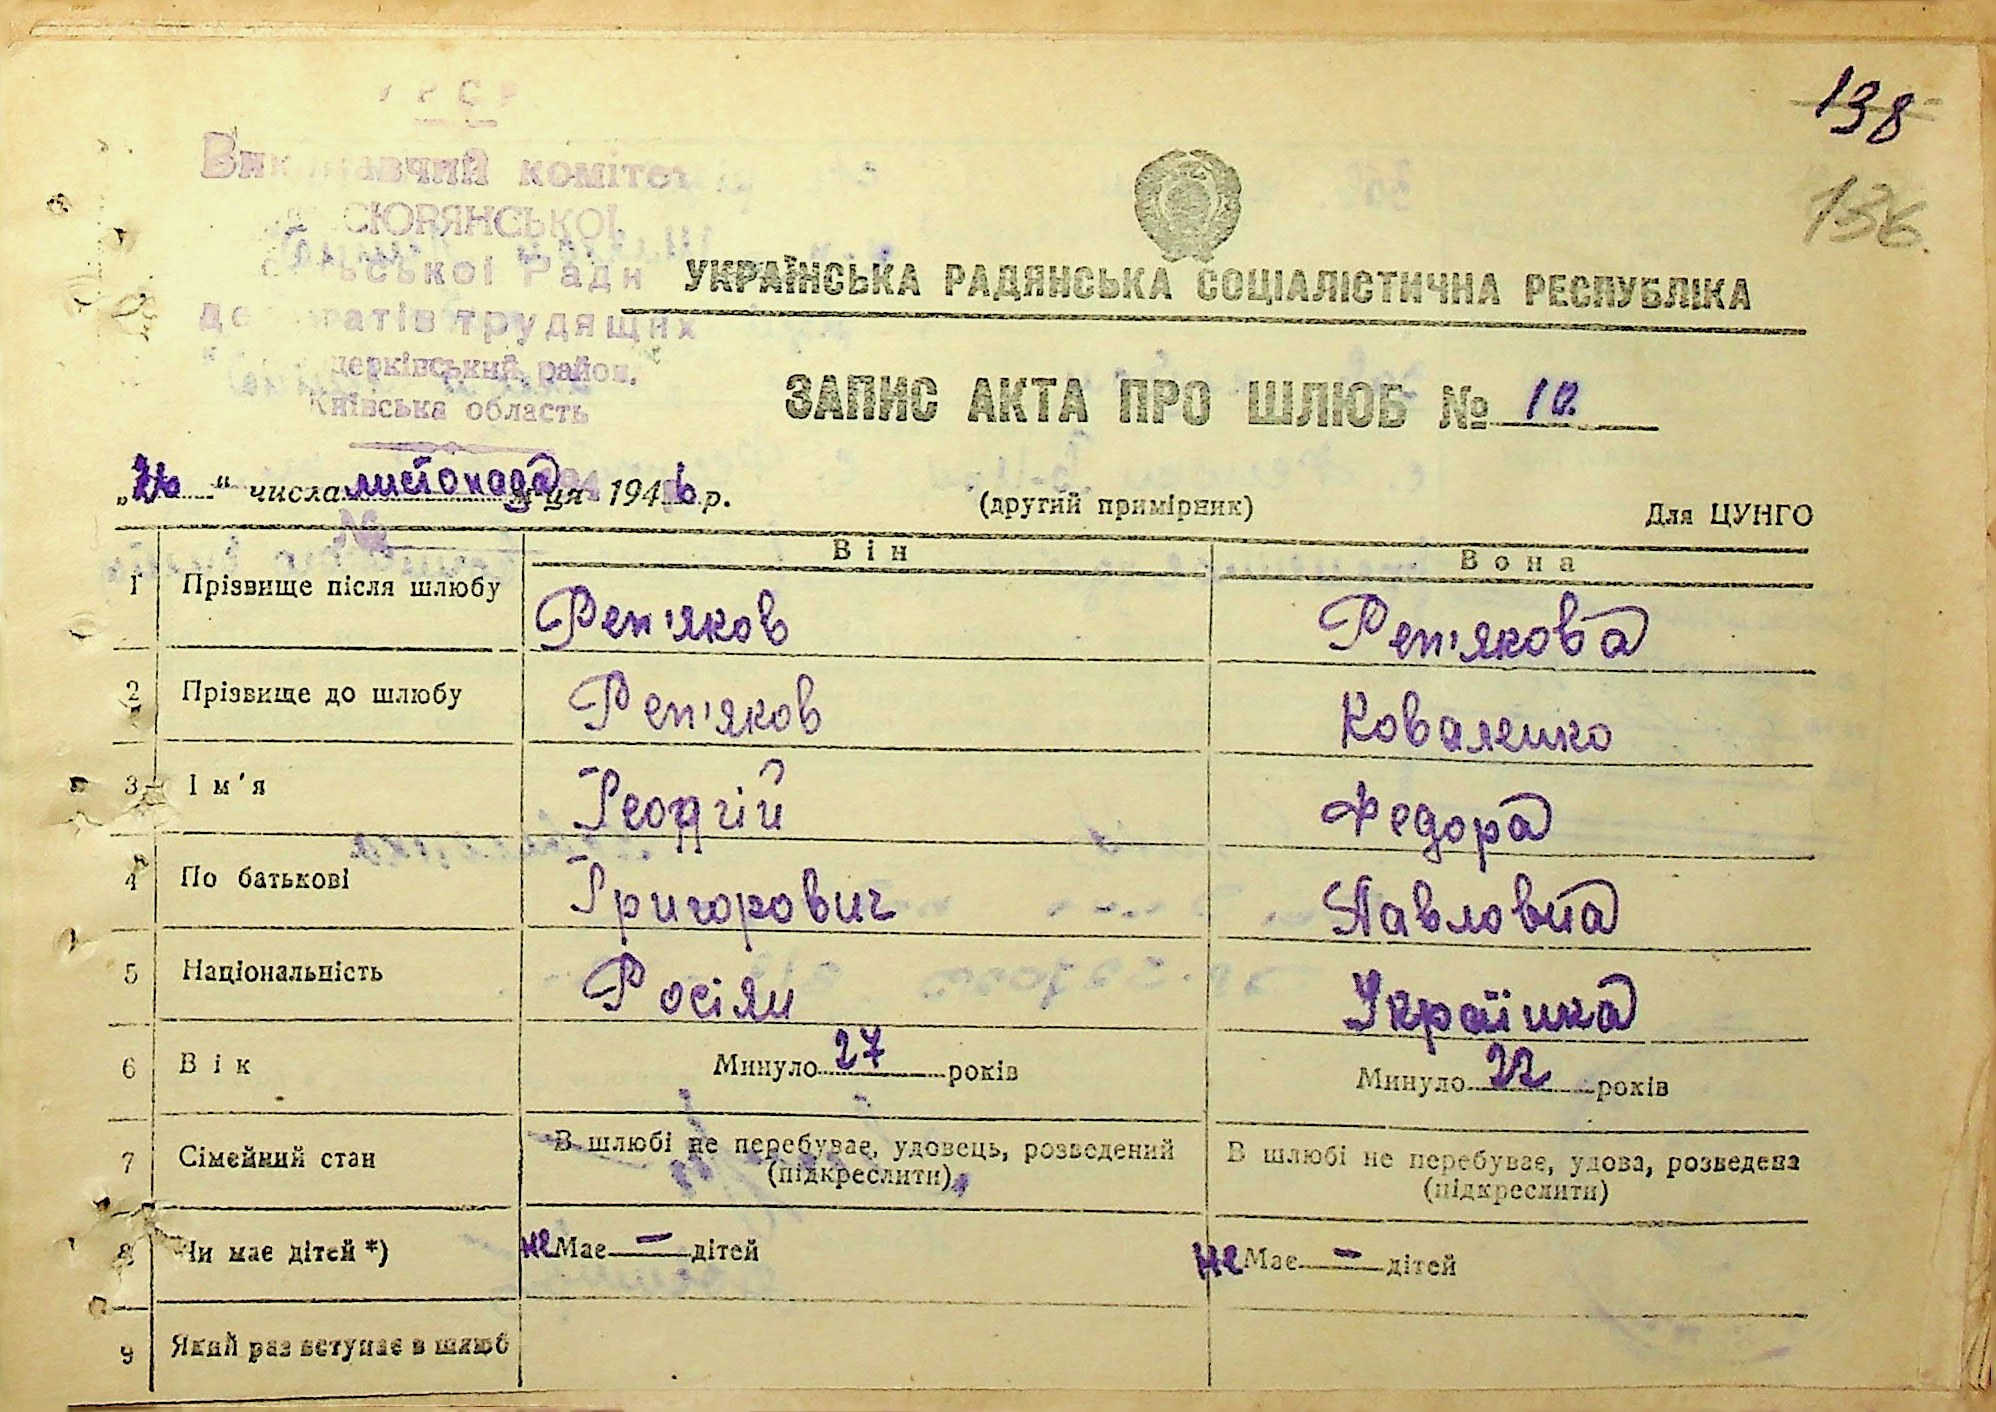 138
136.
УРСР
Виконавчий комітет
СЮРЯНСЬКОЇ
сільської Ради
депутатів трудящих
церківський район,
Київська область
УКРАЇНСЬКА РАДЯНСЬКА СОЦІАЛІСТИЧНА РЕСПУБЛІКА
ЗАПИС АКТА ПРО ШЛЮБ № 10.
числа листопада м-ця 1946 р.
(другий примірник)
Для ЦУНГО
№
Він
Вона
1 Прізвище після шлюбу Реп'яков Реп'якова
2 Прізвище до шлюбу Реп'яков Коваленко
3 Ім'я Георгій Федора
4 По батькові Григорович Павловна
5 Національність Росіян Українка
6 Вік Минуло 27 років Минуло 22 років
7 Сімейний стан В шлюбі не перебуває, удовець, розведений (підкреслити) В шлюбі не перебуває, удова, розведена (підкреслити)
8 Чи має дітей *) не Має — дітей не Має — дітей
9 Який раз вступає в шлюб